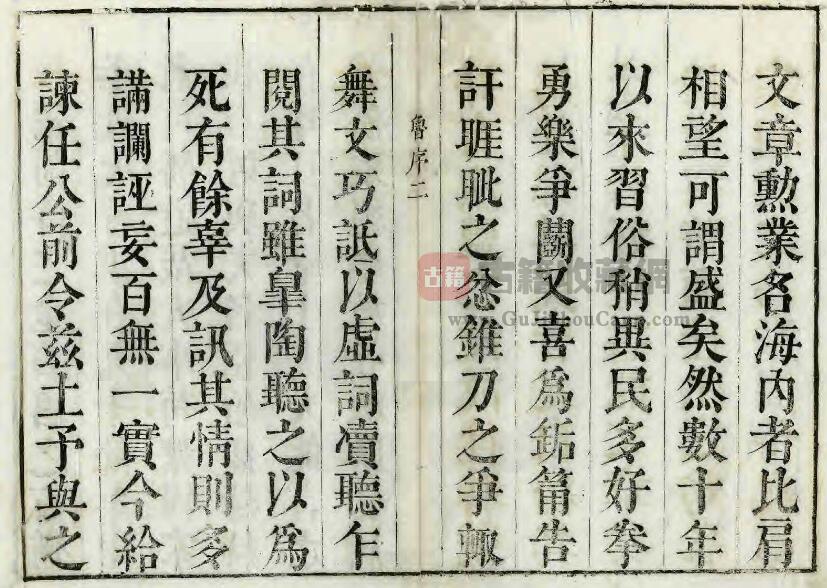 文章勲業名海內者比肩
相望可謂盛矣然數十年
以來習俗稍異民多好拳
勇樂爭鬭又喜爲缿筩告
訐睚眦之忿錐刀之爭輙
魯序二
舞文巧詆以虛詞凟聽乍
閱其詞雖臯陶聽之以爲
死有餘辜及訊其情則多
譪讕誣妄百無一實今給
諫任公前令兹土予與之
古籍
古籍收藏網
www.GuJiShouCang.com